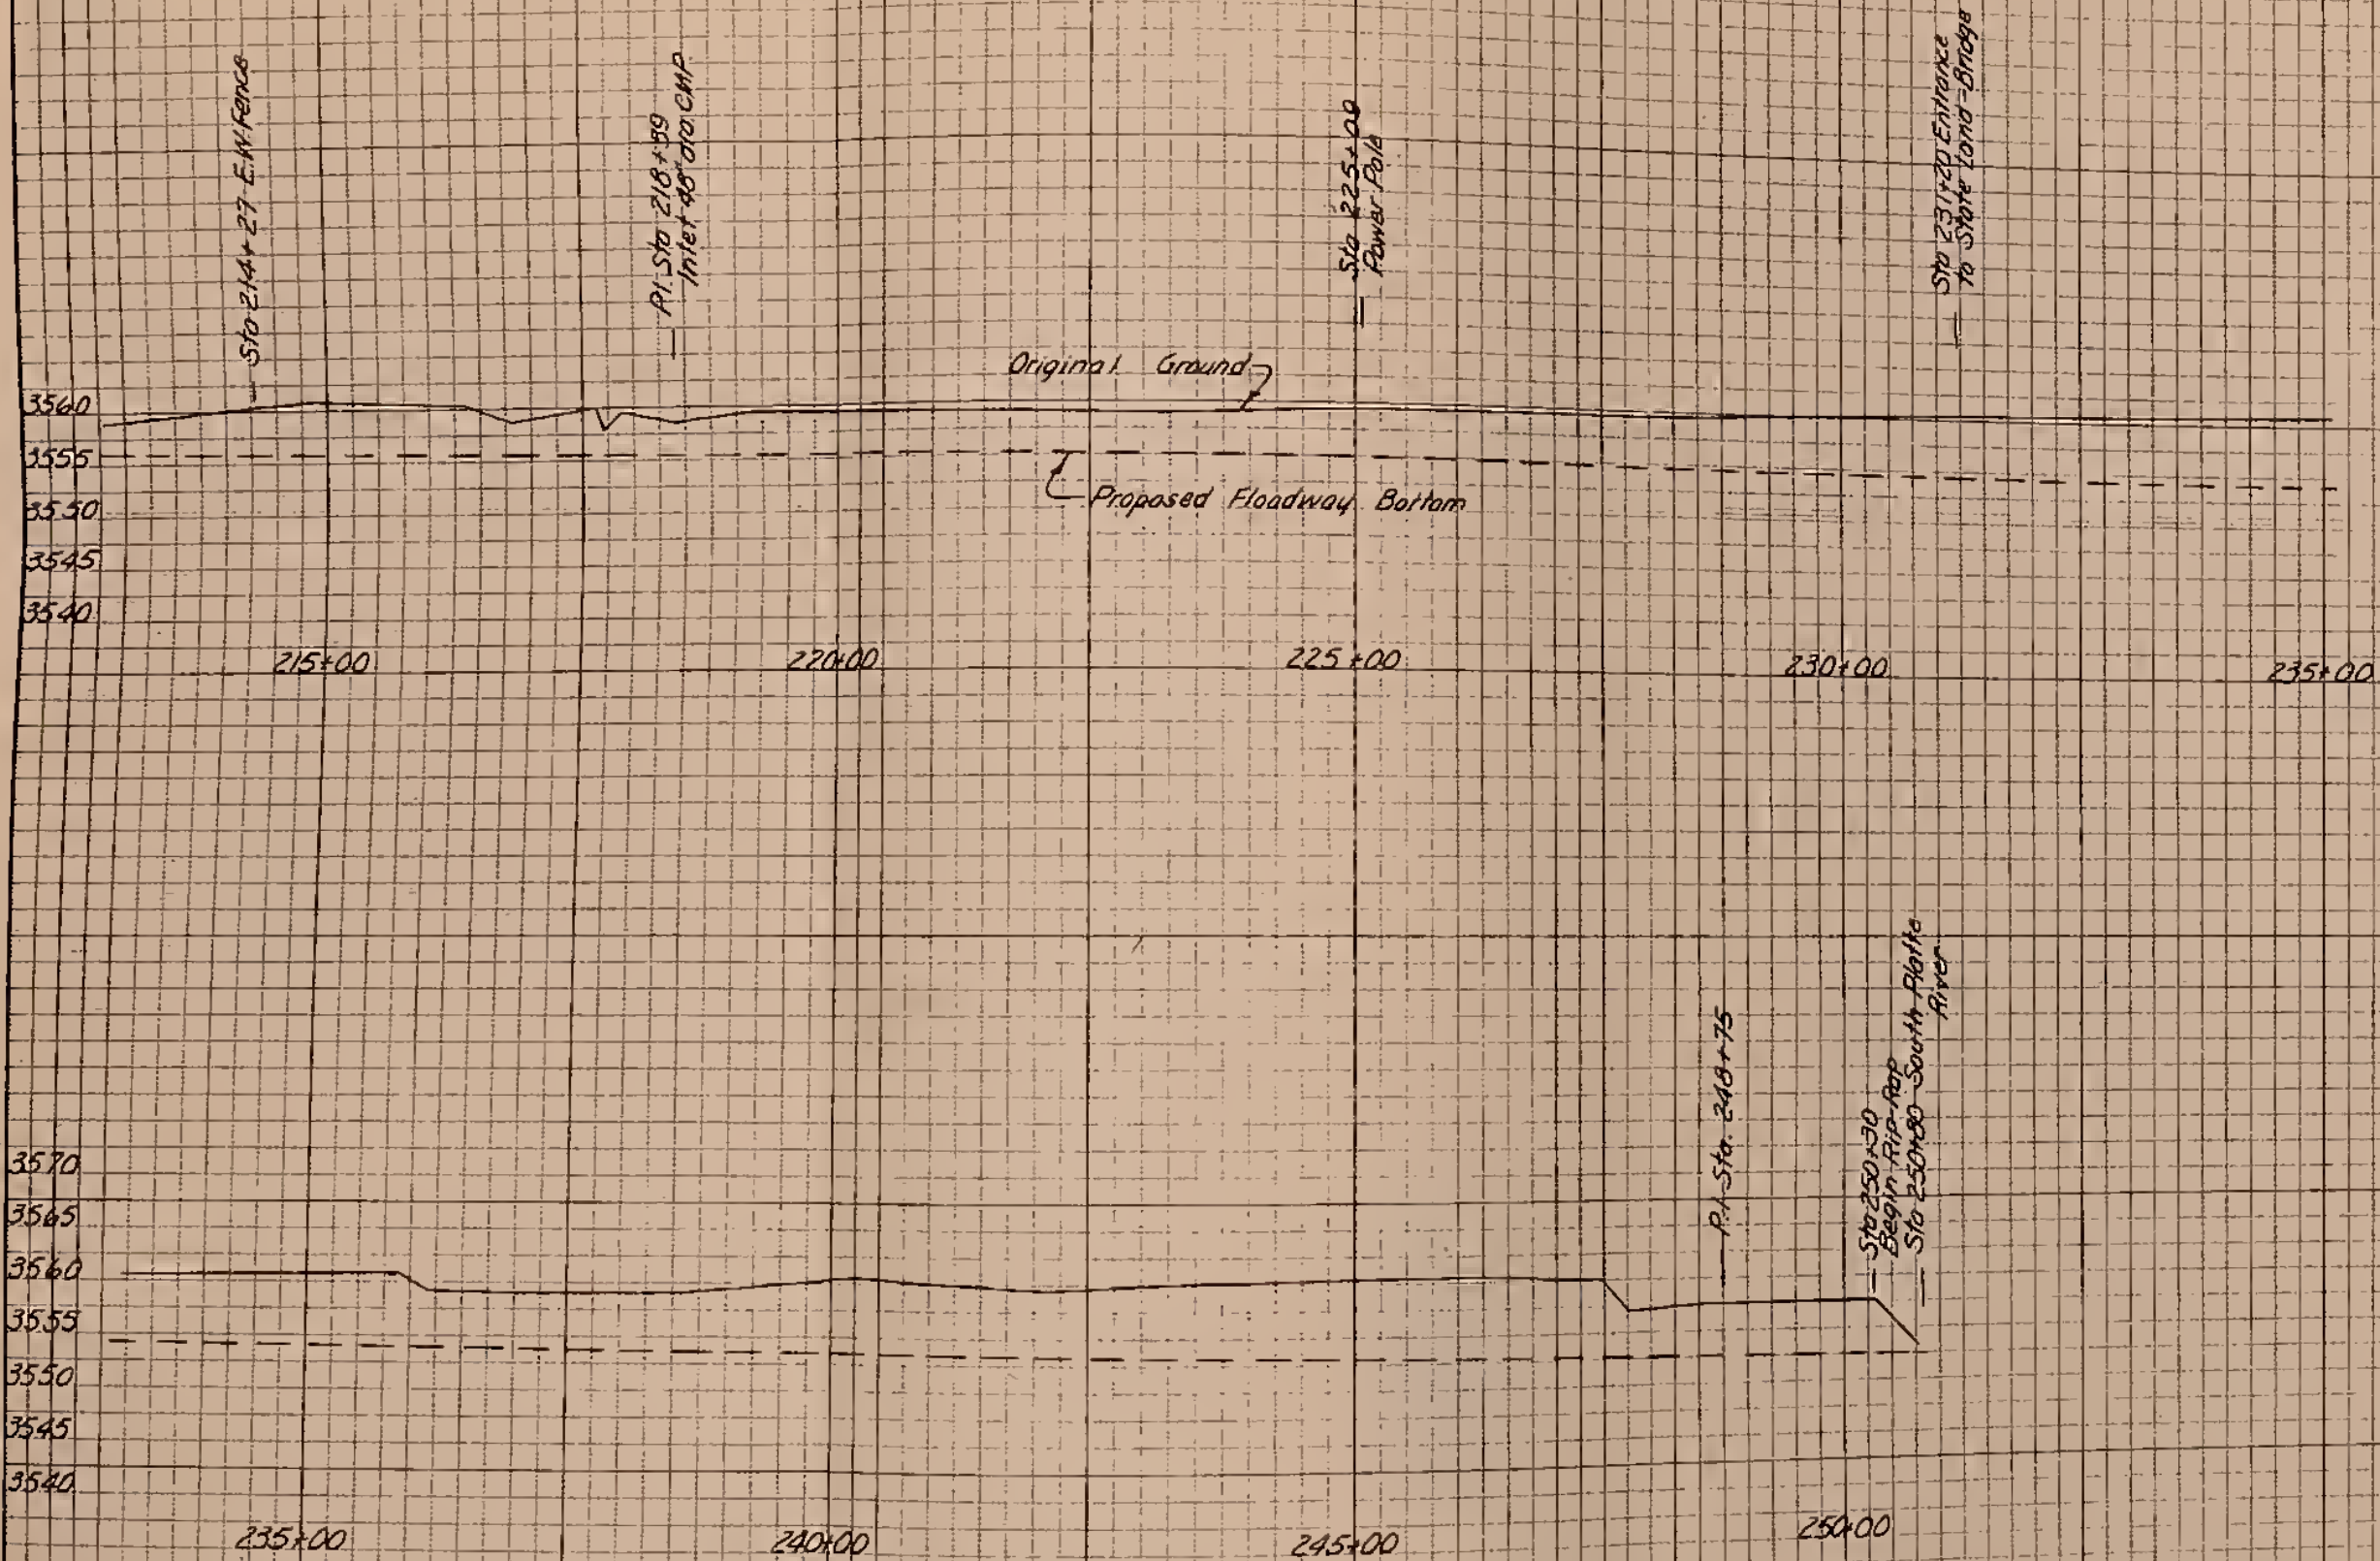 Sta 214+27 E.W. Fence
P.I. Sta 218+99
Inlet 48" dia. CMP
Sta 225+00
Power Pole
Sta 231+20 Entrance
to State Land-Bridge
Original Ground
3560
3555
Proposed Floodway Bottom
3550
3545
3540
215+00
220+00
225+00
230+00
235+00
P.I. Sta. 248+75
Sta 250+30
Begin Rip-Rap
Sta 250+80 South Platte
River
3570
3565
3560
3555
3550
3545
3540
235+00
240+00
245+00
250+00